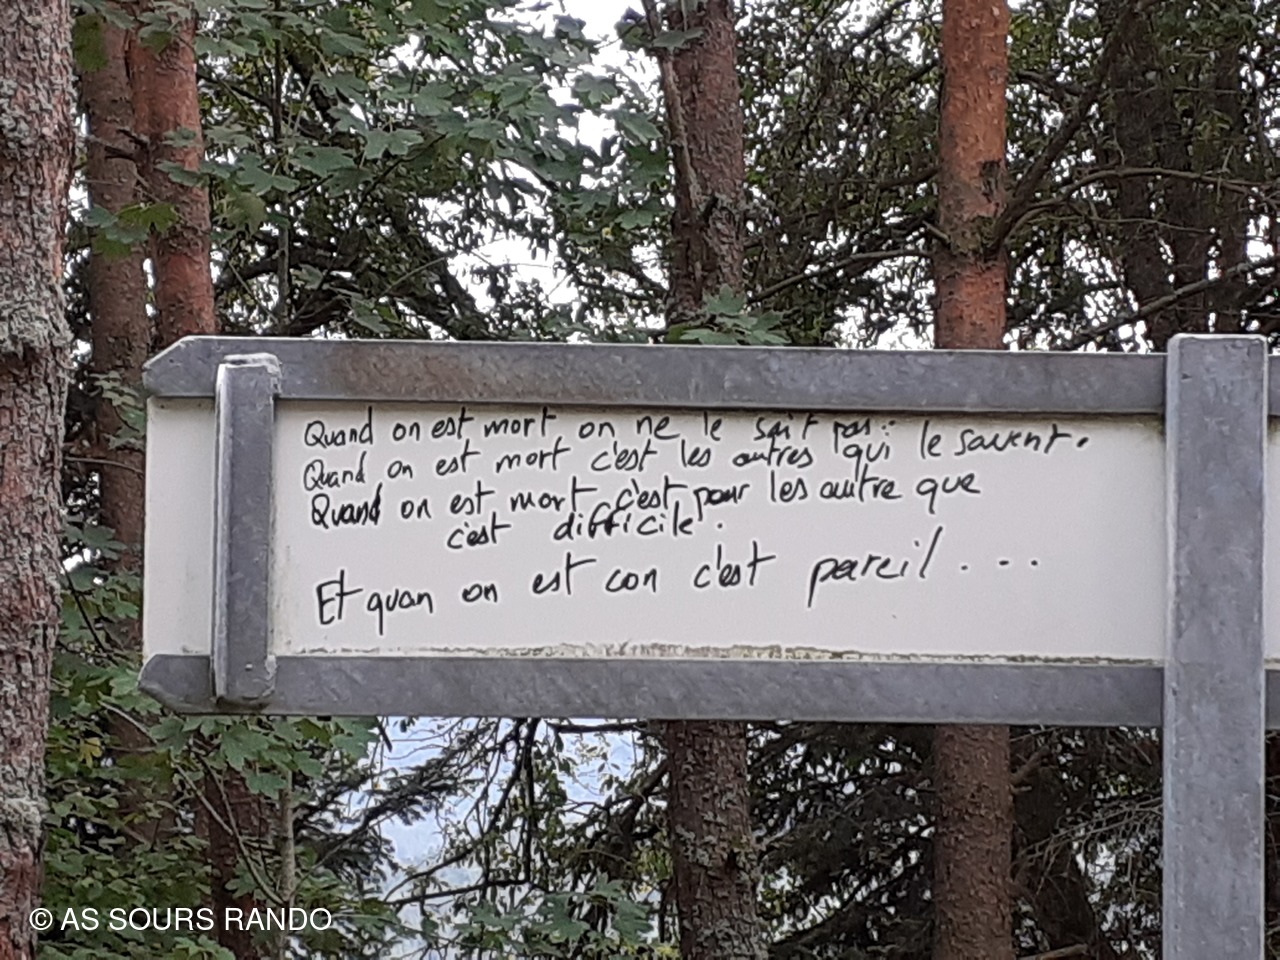 Quand on est mort on ne le sait pas :
Quand on est mort c'est les autres qui le savent.
Quand on est mort c'est pour les autre que
c'est difficile.
Et quan on est con c'est pareil . . .
© AS SOURS RANDO